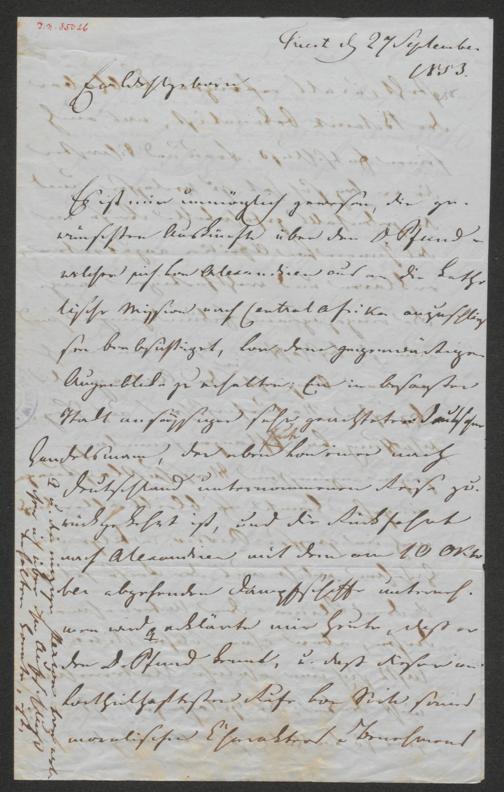 I.N. 85026
Triest d 27 September
1853.
Euer Wohlgeboren
Es ist mir unmöglich gewesen, die ge-
wünschten Auskünfte über den D Pfund -
welcher sich von Alexandrien aus an die katho
lische Mission nach Central Afrika anzuschlie
ßen beabsichtiget, vor dem gegenwärtigen
Augenblick zu erhalten; Ein in besagter
Stadt ansäßiger sehr geachteter deutscher
Handelsmann, der eben von einer nach
Deutschland unternommenen Reise zu-
rückgekehrt ist, und die Rückfahrt
nach Alexandrien mit dem am 10 Okto
ber abgehenden Dampfschiffe unterneh-
men wird, erklärte mir heute, daß er
den D. Pfund kennt, u. daß dieser im
vortheilhaftesten Rufe von Seite seines
moralischen Charakters Benehmens